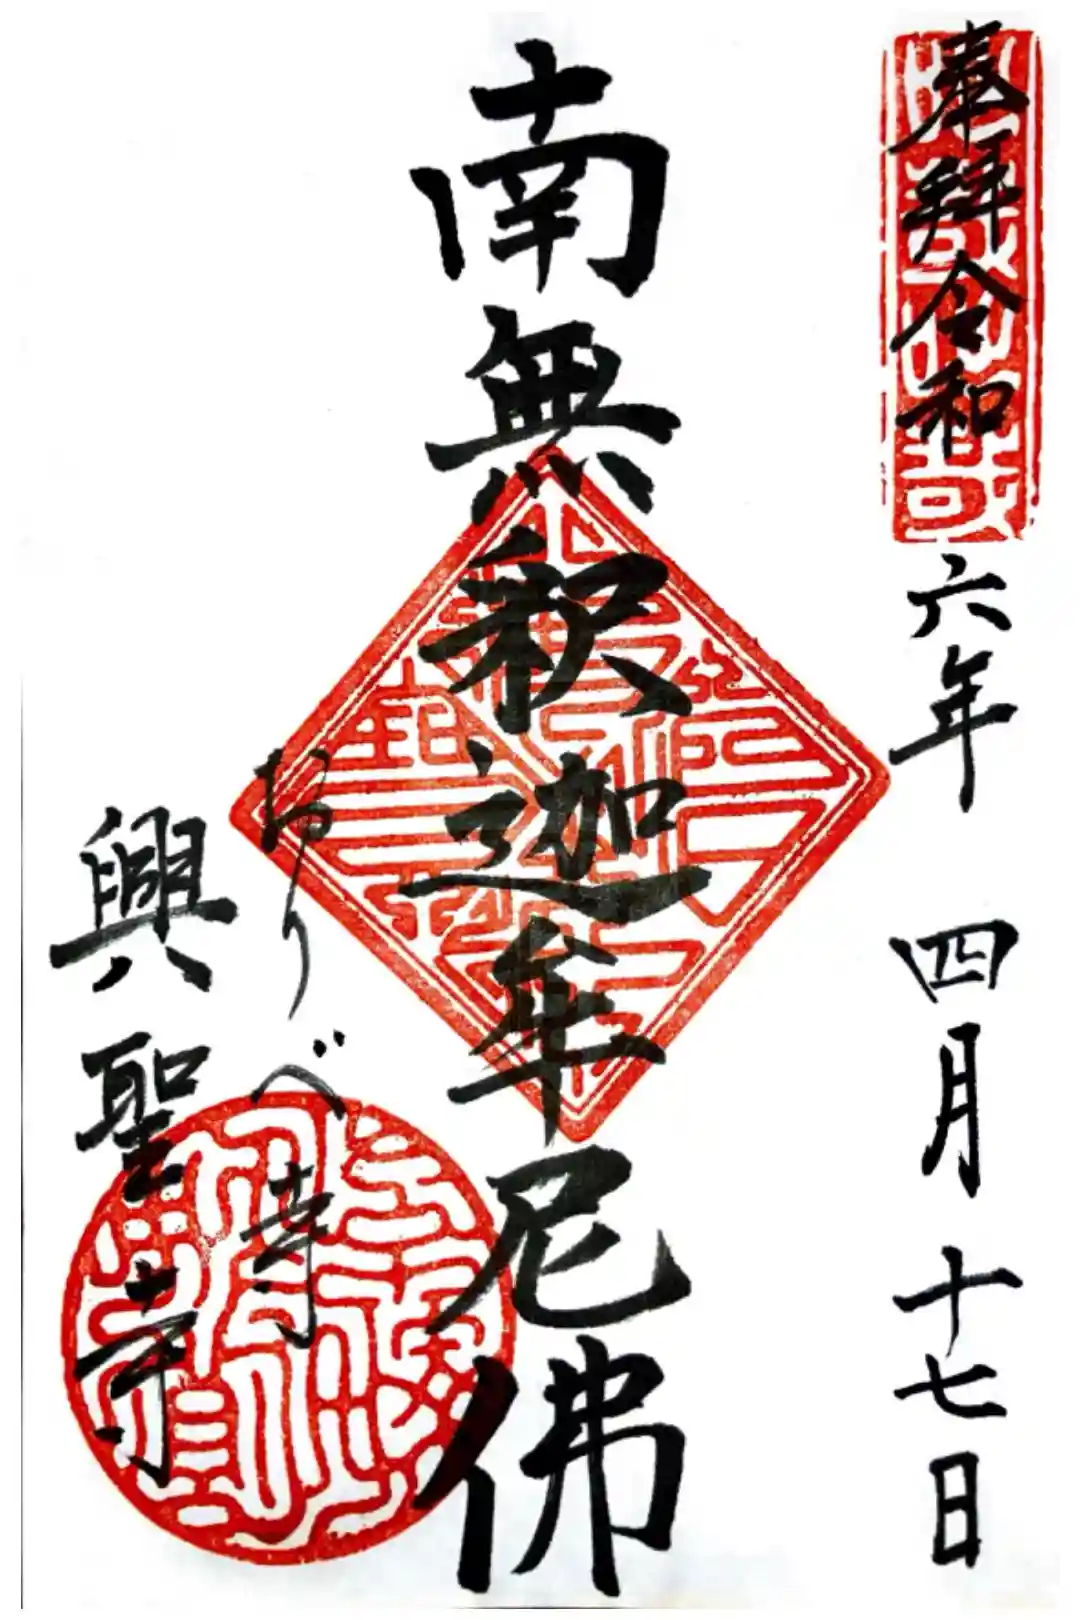 奉拝令和六年 四月十七日
南無釈迦牟尼佛
おりべ寺
興聖寺